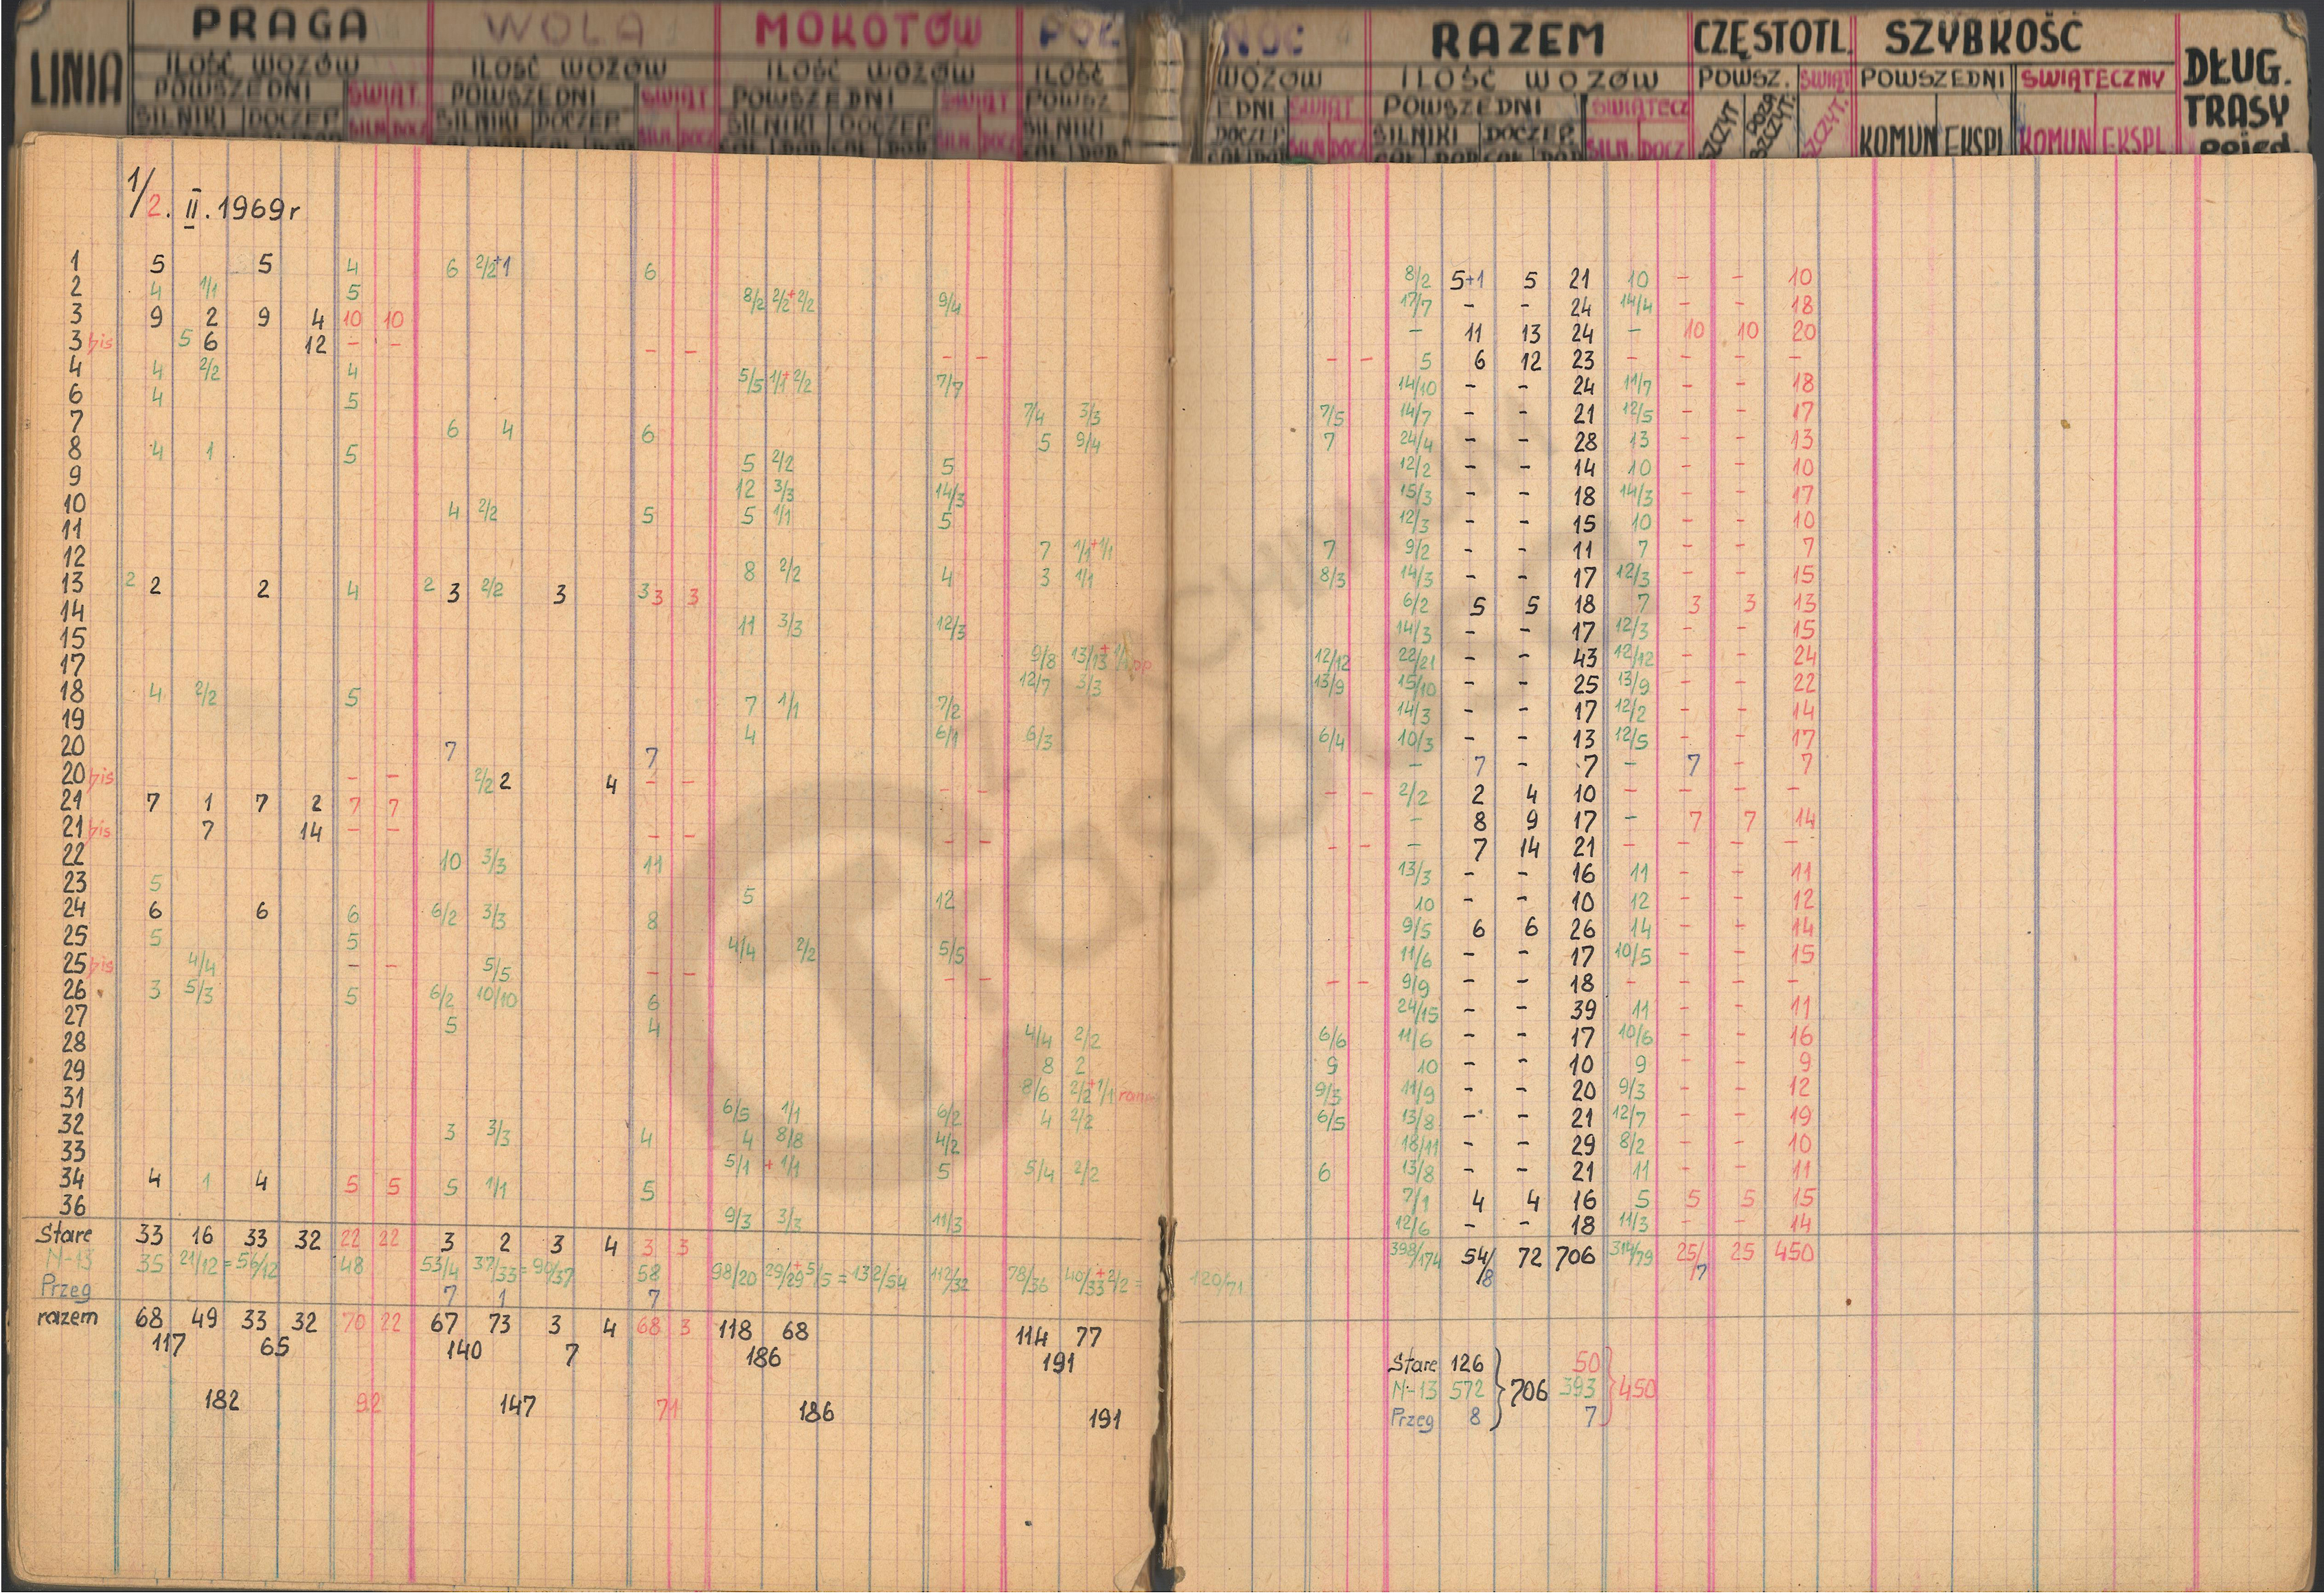 LINIA PRAGA WOLA MOKOTÓW PÓŁNOC RAZEM CZĘSTOTL. SZYBKOŚĆ DŁUG. TRASY pojed
ILOŚĆ WOZÓW ILOŚĆ WOZÓW ILOŚĆ WOZÓW ILOŚĆ WOZÓW ILOŚĆ WOZÓW POWSZ. ŚWIĄT POWSZEDNI ŚWIĄTECZNY
POWSZEDNI ŚWIĄT. POWSZEDNI ŚWIĄT POWSZEDNI ŚWIĄT POWSZ EDNI ŚWIĄT POWSZEDNI ŚWIĄTECZ
SILNIKI DOCZEP SILN. DOCZ SILNIKI DOCZEP SILN. DOCZ SILNIKI DOCZEP SILN. DOCZ SILNIKI DOCZEP SILN. DOCZ SILNIKI DOCZEP SILN. DOCZ SZCZYT POZA SZCZYT. SZCZYT. KOMUN EKSPL KOMUN EKSPL
1/2. II. 1969r
1 5 5 4 6 2/2+1 6 8/2 5+1 5 21 10 - - 10
2 4 1/1 5 8/2 2/2+2/2 9/4 17/7 - - 24 14/4 - - 18
3 9 2 9 4 10 10 - 11 13 24 - 10 10 20
3bis 5 6 12 - - - - - - - - 5 6 12 23 - - - -
4 4 2/2 4 5/5 1/1+2/2 7/7 14/10 - - 24 11/7 - - 18
6 4 5 7/4 3/3 7/5 14/7 - - 21 12/5 - - 17
7 6 4 6 5 9/4 7 24/4 - - 28 13 - - 13
8 4 1 5 5 2/2 5 12/2 - - 14 10 - - 10
9 12 3/3 14/3 15/3 - - 18 14/3 - - 17
10 4 2/2 5 5 1/1 5 12/3 - - 15 10 - - 10
11 7 1/1+1/1 7 9/2 - - 11 7 - - 7
12 8 2/2 4 3 1/1 8/3 14/3 - - 17 12/3 - - 15
13 2 2 2 4 2 3 2/2 3 3 3 3 6/2 5 5 18 7 3 3 13
14 11 3/3 12/3 14/3 - - 17 12/3 - - 15
15 9/8 13/13+1/1 12/12 22/21 - - 43 12/12 - - 24
17 12/7 3/3 13/9 15/10 - - 25 13/9 - - 22
18 4 2/2 5 7 1/1 7/2 14/3 - - 17 12/2 - - 14
19 4 6/1 6/3 6/4 10/3 - - 13 12/5 - - 17
20 7 7 - 7 - 7 - 7 - 7
20bis - - 2/2 2 4 - - - - - - 2/2 2 4 10 - - - -
21 7 1 7 2 7 7 - 8 9 17 - 7 7 14
21bis 7 14 - - - - - - - - - 7 14 21 - - - -
22 10 3/3 11 13/3 - - 16 11 - - 11
23 5 5 12 10 - - 10 12 - - 12
24 6 6 6 6/2 3/3 8 9/5 6 6 26 14 - - 14
25 5 5 4/4 2/2 5/5 11/6 - - 17 10/5 - - 15
25bis 4/4 - - 5/5 - - - - - - 9/9 - - 18 - - - -
26 3 5/3 5 6/2 10/10 6 24/15 - - 39 11 - - 11
27 5 4 4/4 2/2 6/6 11/6 - - 17 10/6 - - 16
28 8 2 9 10 - - 10 9 - - 9
29 8/6 2/2+1/1 rano 9/3 11/9 - - 20 9/3 - - 12
31 6/5 1/1 6/2 4 2/2 6/5 13/8 - - 21 12/7 - - 19
32 3 3/3 4 4 8/8 4/2 18/11 - - 29 8/2 - - 10
33 5/1 + 1/1 5 5/4 2/2 6 13/8 - - 21 11 - - 11
34 4 1 4 5 5 5 1/1 5 7/1 4 4 16 5 5 5 15
36 9/3 3/3 11/3 12/6 - - 18 11/3 - - 14
Stare 33 16 33 32 22 22 3 2 3 4 3 3 398/174 54/8 72 706 314/79 25/7 25 450
N-13 35 21/12=56/12 48 53/4 37/33=90/37 58 98/20 29/29+5/5=132/54 112/32 78/36 40/33+2/2= 120/71
Przeg 7 1 7
razem 68 49 33 32 70 22 67 73 3 4 68 3 118 68 114 77
117 65 140 7 186 191
Stare 126 50
182 92 147 71 186 191 N-13 572 706 393 450
Przeg 8 7